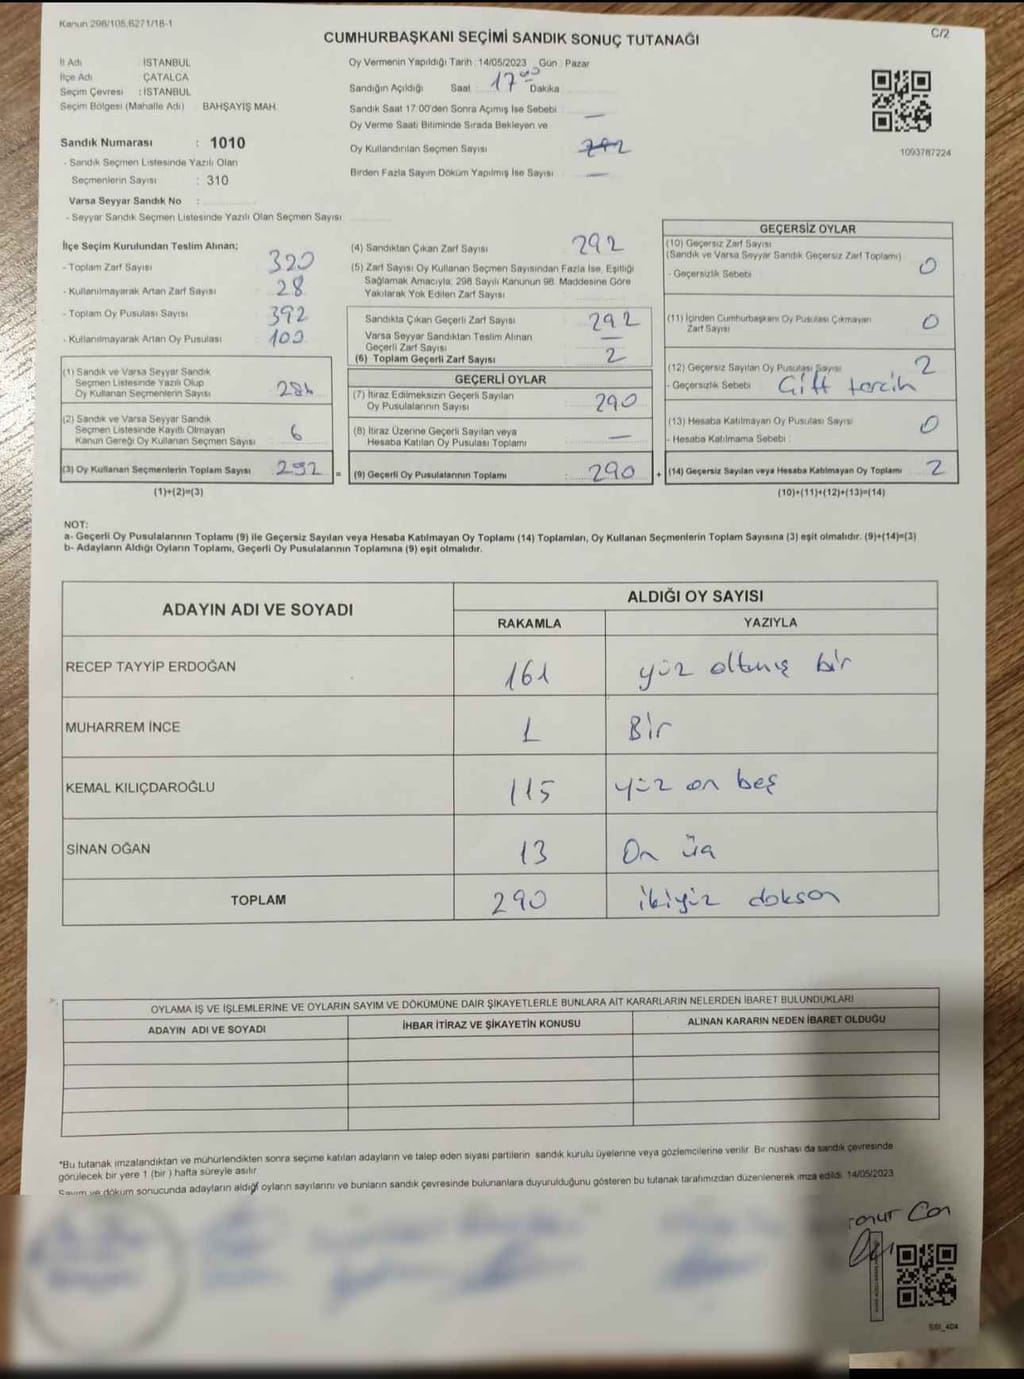 Kanun 298/105,6271/18-1
C/2
CUMHURBAŞKANI SEÇİMİ SANDIK SONUÇ TUTANAĞI
İl Adı : İSTANBUL
İlçe Adı : ÇATALCA
Seçim Çevresi : İSTANBUL
Seçim Bölgesi (Mahalle Adı) : BAHŞAYİŞ MAH.
Sandık Numarası : 1010
- Sandık Seçmen Listesinde Yazılı Olan
Seçmenlerin Sayısı : 310
Varsa Seyyar Sandık No :
- Seyyar Sandık Seçmen Listesinde Yazılı Olan Seçmen Sayısı
Oy Vermenin Yapıldığı Tarih : 14/05/2023 Gün : Pazar
Sandığın Açıldığı Saat 17 00 Dakika
Sandık Saat 17:00'den Sonra Açımış İse Sebebi —
Oy Verme Saati Bitiminde Sırada Bekleyen ve
Oy Kullandırılan Seçmen Sayısı 292
Birden Fazla Sayım Döküm Yapılmış İse Sayısı —
1093787224
İlçe Seçim Kurulundan Teslim Alınan;
- Toplam Zarf Sayısı 320
- Kullanılmayarak Artan Zarf Sayısı 28
- Toplam Oy Pusulası Sayısı 392
- Kullanılmayarak Artan Oy Pusulası 100
(1) Sandık ve Varsa Seyyar Sandık
Seçmen Listesinde Yazılı Olup
Oy Kullanan Seçmenlerin Sayısı
(2) Sandık ve Varsa Seyyar Sandık
Seçmen Listesinde Kayıtlı Olmayan
Kanun Gereği Oy Kullanan Seçmen Sayısı 6
(3) Oy Kullanan Seçmenlerin Toplam Sayısı 292 =
(1)+(2)=(3)
(4) Sandıktan Çıkan Zarf Sayısı 292
(5) Zarf Sayısı Oy Kullanan Seçmen Sayısından Fazla İse, Eşitliği
Sağlamak Amacıyla, 298 Sayılı Kanunun 98. Maddesine Göre
Yakılarak Yok Edilen Zarf Sayısı
Sandıkta Çıkan Geçerli Zarf Sayısı 292
Varsa Seyyar Sandıktan Teslim Alınan
Geçerli Zarf Sayısı —
(6) Toplam Geçerli Zarf Sayısı 2
GEÇERLİ OYLAR
(7) İtiraz Edilmeksizin Geçerli Sayılan
Oy Pusulalarının Sayısı 290
(8) İtiraz Üzerine Geçerli Sayılan veya
Hesaba Katılan Oy Pusulası Toplamı —
(9) Geçerli Oy Pusulalarının Toplamı 290 +
GEÇERSİZ OYLAR
(10) Geçersiz Zarf Sayısı
(Sandık ve Varsa Seyyar Sandık Geçersiz Zarf Toplamı) 0
- Geçersizlik Sebebi
(11) İçinden Cumhurbaşkanı Oy Pusulası Çıkmayan 0
Zarf Sayısı
(12) Geçersiz Sayılan Oy Pusulası Sayısı 2
- Geçersizlik Sebebi Çift tercih
(13) Hesaba Katılmayan Oy Pusulası Sayısı 0
- Hesaba Katılmama Sebebi :
(14) Geçersiz Sayılan veya Hesaba Katılmayan Oy Toplamı 2
(10)+(11)+(12)+(13)=(14)
NOT:
a- Geçerli Oy Pusulalarının Toplamı (9) ile Geçersiz Sayılan veya Hesaba Katılmayan Oy Toplamı (14) Toplamları, Oy Kullanan Seçmenlerin Toplam Sayısına (3) eşit olmalıdır. (9)+(14)=(3)
b- Adayların Aldığı Oyların Toplamı, Geçerli Oy Pusulalarının Toplamına (9) eşit olmalıdır.
ADAYIN ADI VE SOYADI ALDIĞI OY SAYISI
RAKAMLA YAZIYLA
RECEP TAYYİP ERDOĞAN 161 yüz altmış bir
MUHARREM İNCE 1 Bir
KEMAL KILIÇDAROĞLU 115 yüz on beş
SİNAN OĞAN 13 On üç
TOPLAM 290 ikiyüz doksan
OYLAMA İŞ VE İŞLEMLERİNE VE OYLARIN SAYIM VE DÖKÜMÜNE DAİR ŞİKAYETLERLE BUNLARA AİT KARARLARIN NELERDEN İBARET BULUNDUKLARI
ADAYIN ADI VE SOYADI İHBAR İTİRAZ VE ŞİKAYETİN KONUSU ALINAN KARARIN NEDEN İBARET OLDUĞU
*Bu tutanak imzalandıktan ve mühürlendikten sonra seçime katılan adayların ve talep eden siyasi partilerin sandık kurulu üyelerine veya gözlemcilerine verilir. Bir nushası da sandık çevresinde
görülecek bir yere 1 (bir) hafta süreyle asılır.
Sayım ve döküm sonucunda adayların aldığı oyların sayılarını ve bunların sandık çevresinde bulunanlara duyurulduğunu gösteren bu tutanak tarafımızdan düzenlenerek imza edildi. 14/05/2023
Can
SSI_404